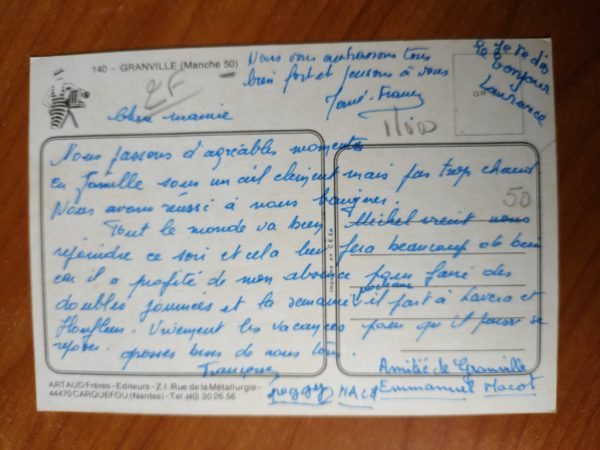 140 - GRANVILLE (Manche 50)
2F
Nous vous embrassons tous
bien fort et pensons à vous
je te dis
bonjour
Laurance
Chère mamie
50
Nous passons d'agréables moments
en famille sous un ciel clément mais pas trop chaud
Nous avons réussi à nous baigner.
Tout le monde va bien Michel vient nous
rejoindre ce soir et cela lui fera beaucoup de bien
car il a profité de mon absence pour faire des
doubles journées et la semaine prochaine il part à Lavera et
Honfleur. Vivement les vacances pour qu'il puisse se
reposer. Grosses bises de nous tous.
Françoise
Amitiés de Granville
Peggy MACOT Emmanuel Macot
Imprimé en C.E.E.
ARTAUD Frères - Editeurs - Z.I. Rue de la Métallurgie -
44470 CARQUEFOU (Nantes) - Tel. (40) 30 26 56